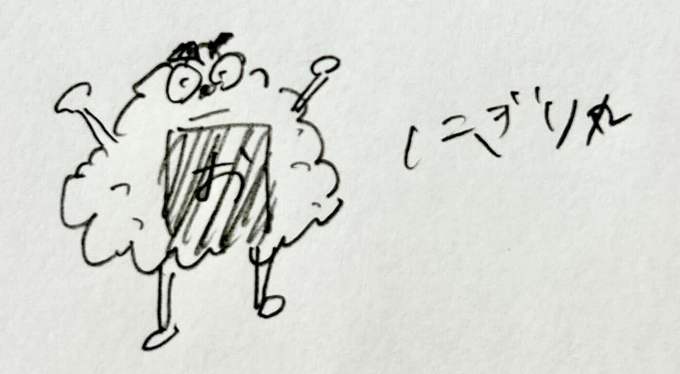 お
にぎり丸